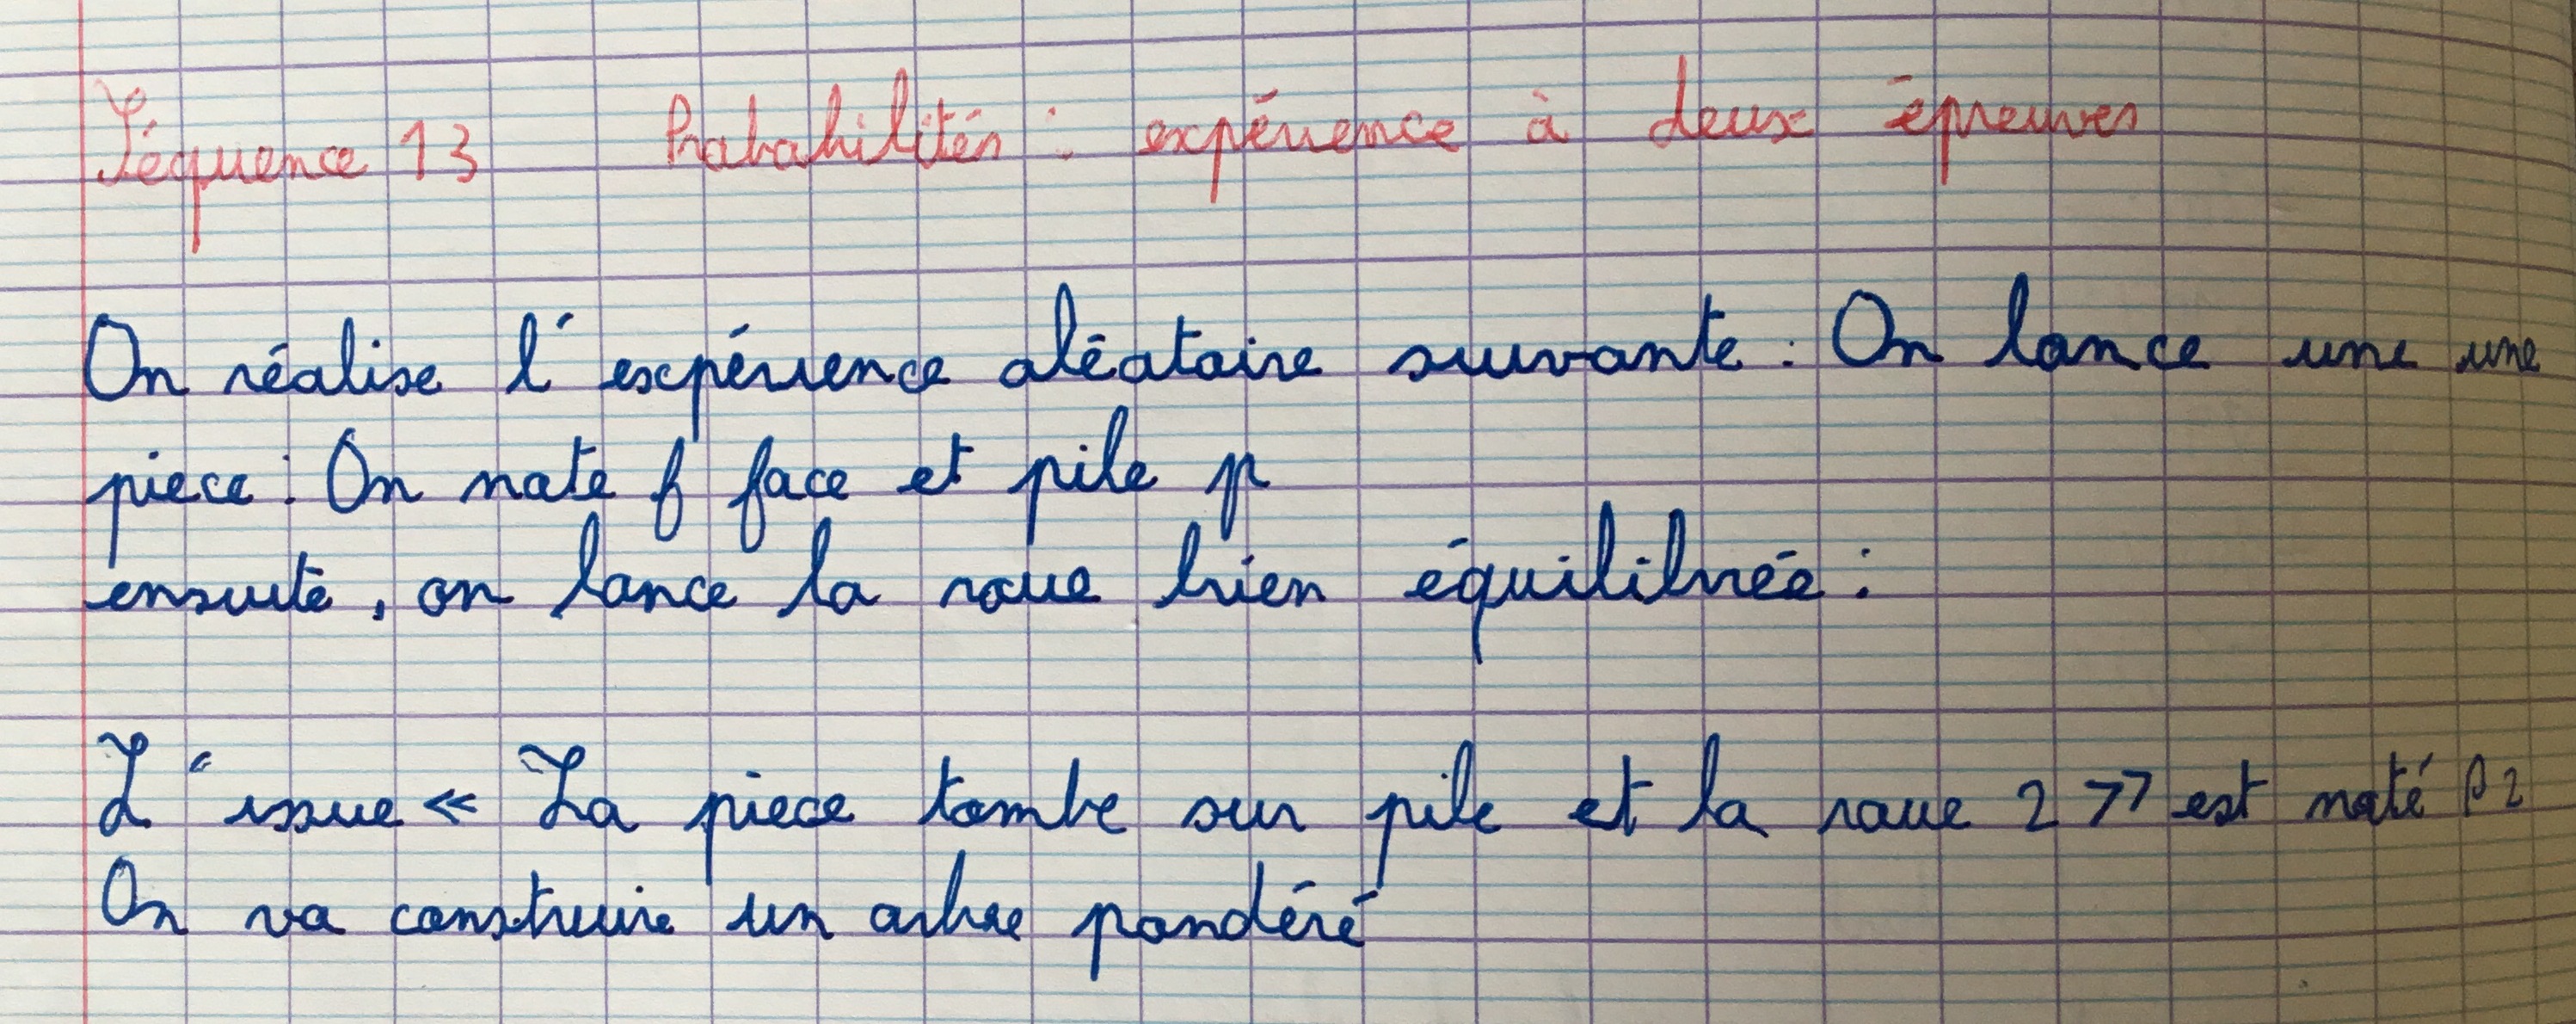 Séquence 13 Probabilités : expérience à deux épreuves
On réalise l'expérience aléatoire suivante : On lance une une
piece : On note f face et pile p
ensuite, on lance la roue bien équilibrée :
L'issue « La piece tombe sur pile et la roue 2 » est noté P2
On va construire un arbre pondéré